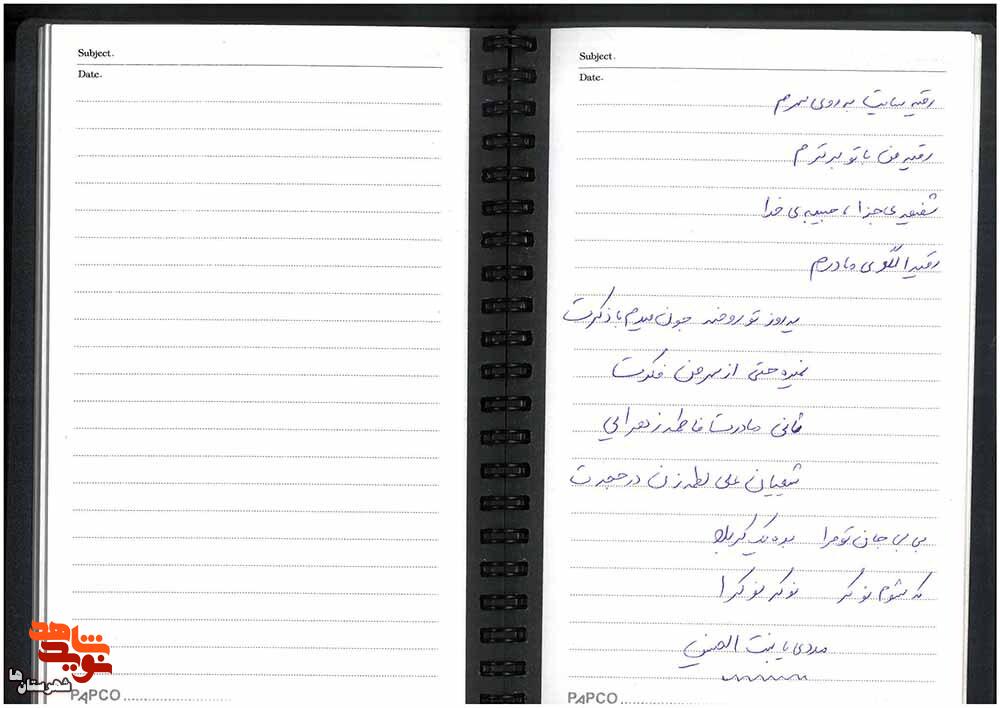 Subject.
Date.
PAPCO
Subject.
Date.
رقیه سایت به روی سرم
رقیه من با تو برترم
شفیعه ی جزا ، حبیبه ی خدا
رقیه الگوی مادرم
یه روز تو روضه جون میدم با ذکرت
نمیره حتی از سر من فکرت
ثانی مادرت فاطمه زهرایی
شیعیان علی لطمه زن در هجرت
بی بی جان تو مرا بده یک کربلا
که بشوم نوکر نوکر نوکرا
مددی یا بنت الحسین
PAPCO
نوید شاهد
شهرستان ها